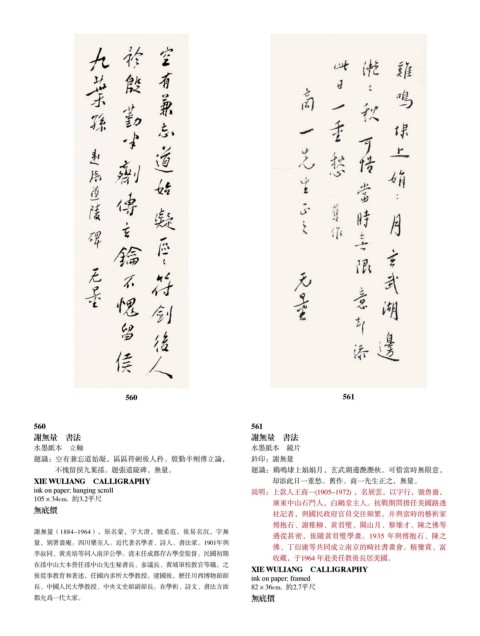 空有兼忘道始凝區〻符劍後人
矜殷勤半劑傳立鑰不愧留侯
九葉孫
題張道陵碑
无量
雞鳴埭上娟〻月玄武湖邊
灔〻秋可惜當時無限意却添
此日一重愁 舊作
商一先生正之 无量
560
561
560
謝無量 書法
水墨紙本 立軸
題識：空有兼忘道始凝，區區符劍後人矜。殷勤半劑傳立論，
不愧留侯九葉孫。題張道陵碑，無量。
XIE WULIANG CALLIGRAPHY
ink on paper; hanging scroll
105 x 34cm. 約3.2平尺
無底價
謝無量（1884-1964），原名蒙，字大澄，號希范，後易名沉，字無
量，別署嗇庵。四川樂至人。近代著名學者、詩人、書法家。1901年與
李叔同、黃炎培等同入南洋公學。清末任成都存古學堂監督。民國初期
在孫中山大本營任孫中山先生秘書長、參議長、黃埔軍校教官等職。之
後從事教育和著述，任國內多所大學教授。建國後，歷任川西博物館館
長、中國人民大學教授、中央文史館副館長。在學術、詩文、書法方面
都允爲一代大家。
561
謝無量 書法
水墨紙本 鏡片
鈐印：謝無量
題識：鷄鳴埭上娟娟月，玄武湖邊灔灔秋。可惜當時無限意，
却添此日一重愁。舊作。商一先生正之，無量。
説明：上款人王商一(1905-1972)，名展雲，以字行，號魯齋。
廣東中山石門人，白鷗堂主人。抗戰期間擔任美國路透
社記者，與國民政府官員交往頻繁，并與當時的藝術家
傅抱石、謝稚柳、黃君璧、關山月、黎雄才、陳之佛等
過從甚密，後隨黃君璧學畫。1935 年與傅抱石、陳之
佛、丁衍庸等共同成立南京的畸社書畫會。精鑒賞、富
收藏，于1964 年赴美任教後長居美國。
XIE WULIANG CALLIGRAPHY
ink on paper; framed
82 × 36cm. 約2.7平尺
無底價